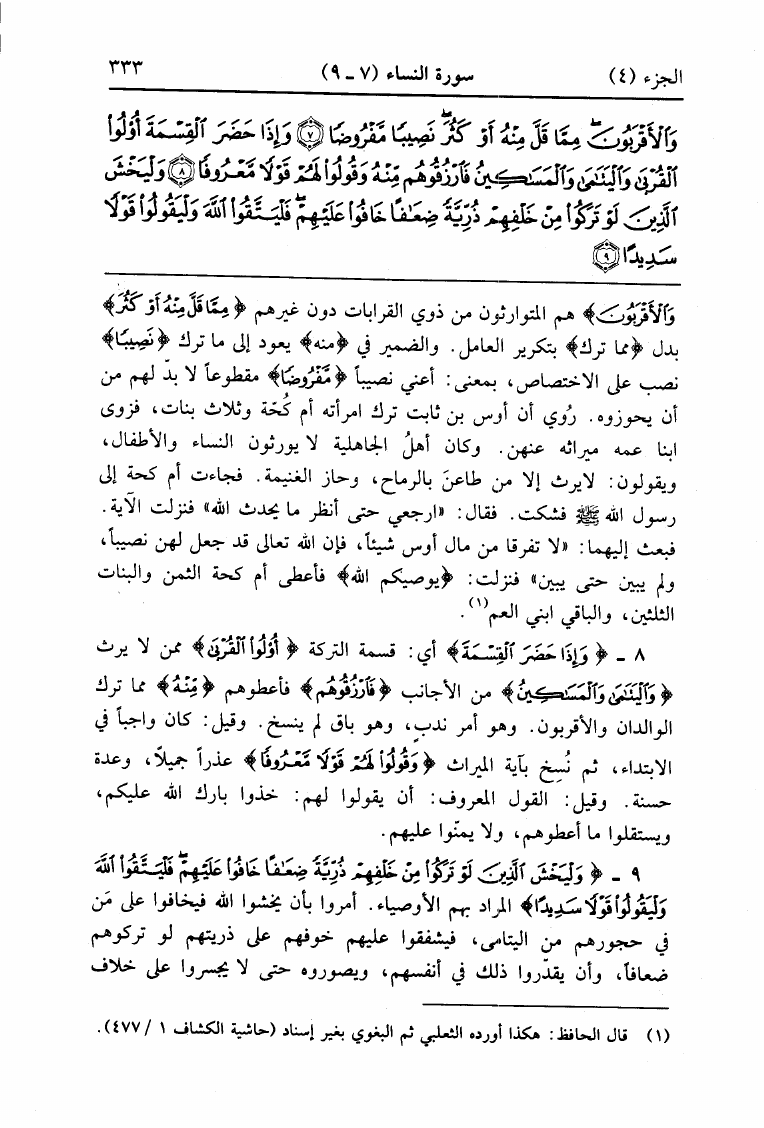 الجزء (٤) سورة النساء (٧ ـ ٩) ٣٣٣
وَٱلْأَقْرَبُونَ مِمَّا قَلَّ مِنْهُ أَوْ كَثُرَۚ نَصِيبًا مَّفْرُوضًا ﴿٧﴾ وَإِذَا حَضَرَ ٱلْقِسْمَةَ أُو۟لُوا۟
ٱلْقُرْبَىٰ وَٱلْيَتَٰمَىٰ وَٱلْمَسَٰكِينُ فَٱرْزُقُوهُم مِّنْهُ وَقُولُوا۟ لَهُمْ قَوْلًا مَّعْرُوفًا ﴿٨﴾ وَلْيَخْشَ
ٱلَّذِينَ لَوْ تَرَكُوا۟ مِنْ خَلْفِهِمْ ذُرِّيَّةً ضِعَٰفًا خَافُوا۟ عَلَيْهِمْۖ فَلْيَتَّقُوا۟ ٱللَّهَ وَلْيَقُولُوا۟ قَوْلًا
سَدِيدًا ﴿٩﴾
وَٱلْأَقْرَبُونَ﴾ هم المتوارثون من ذوي القرابات دون غيرهم ﴿مِمَّا قَلَّ مِنْهُ أَوْ كَثُرَ﴾
بدل ﴿مما ترك﴾ بتكرير العامل. والضمير في ﴿منه﴾ يعود إلى ما ترك ﴿نَصِيبًا﴾
نصب على الاختصاص، بمعنى: أعني نصيباً ﴿مَّفْرُوضًا﴾ مقطوعاً لا بدّ لهم من
أن يحوزوه. رُوي أن أوس بن ثابت ترك امرأته أم كُحّة وثلاث بنات، فزوى
ابنا عمه ميراثه عنهن. وكان أهلُ الجاهلية لا يورثون النساء والأطفال،
ويقولون: لايرث إلا من طاعنَ بالرماح، وحاز الغنيمة. فجاءت أم كحة إلى
رسول الله ﷺ فشكت. فقال: «ارجعي حتى أنظر ما يحدث الله» فنزلت الآية.
فبعث إليهما: «لا تفرقا من مال أوس شيئاً، فإن الله تعالى قد جعل لهن نصيباً،
ولم يبين حتى يبين» فنزلت: ﴿يوصيكم الله﴾ فأعطى أم كحة الثمن والبنات
الثلثين، والباقي ابني العم(١).
٨ ـ ﴿وَإِذَا حَضَرَ ٱلْقِسْمَةَ﴾ أي: قسمة التركة ﴿أُو۟لُوا۟ ٱلْقُرْبَىٰ﴾ ممن لا يرث
﴿وَٱلْيَتَٰمَىٰ وَٱلْمَسَٰكِينُ﴾ من الأجانب ﴿فَٱرْزُقُوهُم﴾ فأعطوهم ﴿مِّنْهُ﴾ مما ترك
الوالدان والأقربون. وهو أمر ندبٍ، وهو باق لم ينسخ. وقيل: كان واجباً في
الابتداء، ثم نُسِخ بآية الميراث ﴿وَقُولُوا۟ لَهُمْ قَوْلًا مَّعْرُوفًا﴾ عذراً جميلاً، وعدة
حسنة. وقيل: القول المعروف: أن يقولوا لهم: خذوا بارك الله عليكم،
ويستقلوا ما أعطوهم، ولا يمنّوا عليهم.
٩ ـ ﴿وَلْيَخْشَ ٱلَّذِينَ لَوْ تَرَكُوا۟ مِنْ خَلْفِهِمْ ذُرِّيَّةً ضِعَٰفًا خَافُوا۟ عَلَيْهِمْۖ فَلْيَتَّقُوا۟ ٱللَّهَ
وَلْيَقُولُوا۟ قَوْلًا سَدِيدًا﴾ المراد بهم الأوصياء. أمروا بأن يخشوا الله فيخافوا على مَن
في حجورهم من اليتامى، فيشفقوا عليهم خوفهم على ذريتهم لو تركوهم
ضعافاً، وأن يقدّروا ذلك في أنفسهم، ويصوروه حتى لا يجسروا على خلاف
(١) قال الحافظ: هكذا أورده الثعلبي ثم البغوي بغير إسناد (حاشية الكشاف ١ / ٤٧٧).